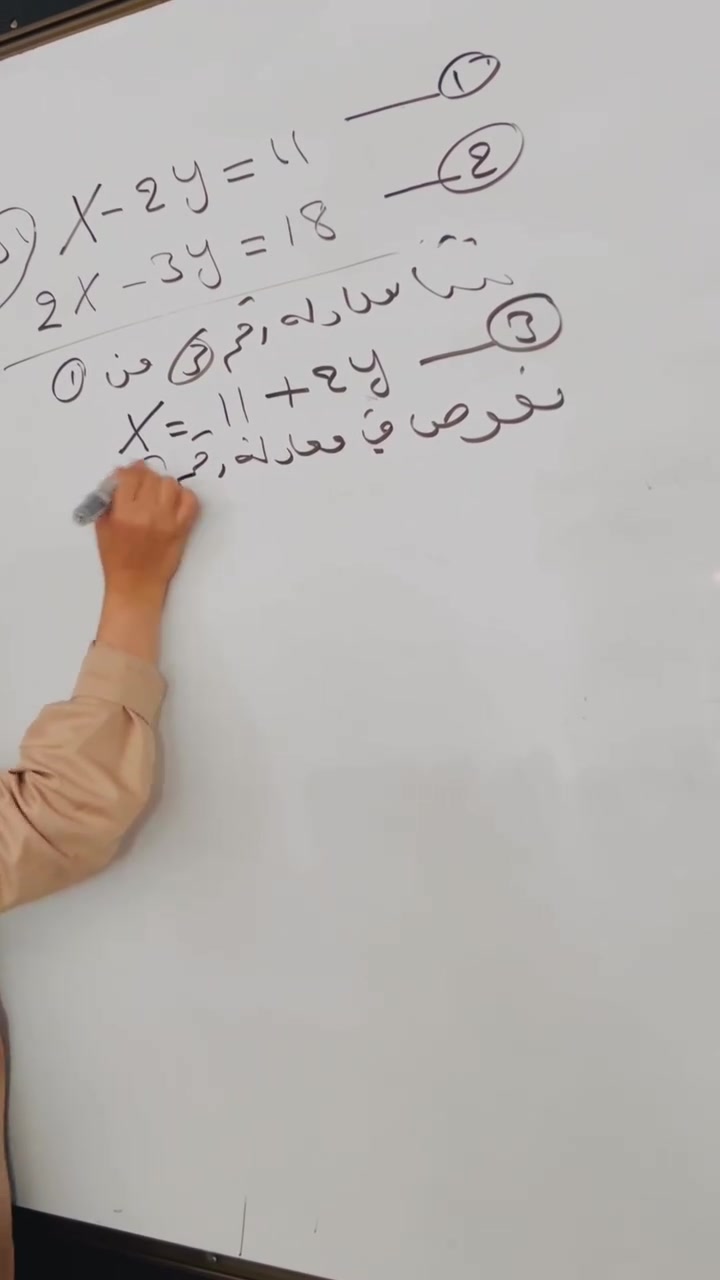 x - 2y = 11 ——— ①
2x - 3y = 18 ——— ②
معادلة رقم ③ من ①
x = 11 + 2y ——— ③
نعوض في معادلة رقم